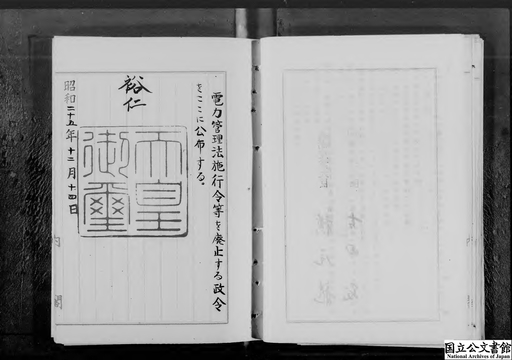 電力管理法施行令等を廃止する政令
をここに公布する。
裕仁
天皇
御璽
昭和二十五年十二月十四日
内閣
国立公文書館
National Archives of Japan